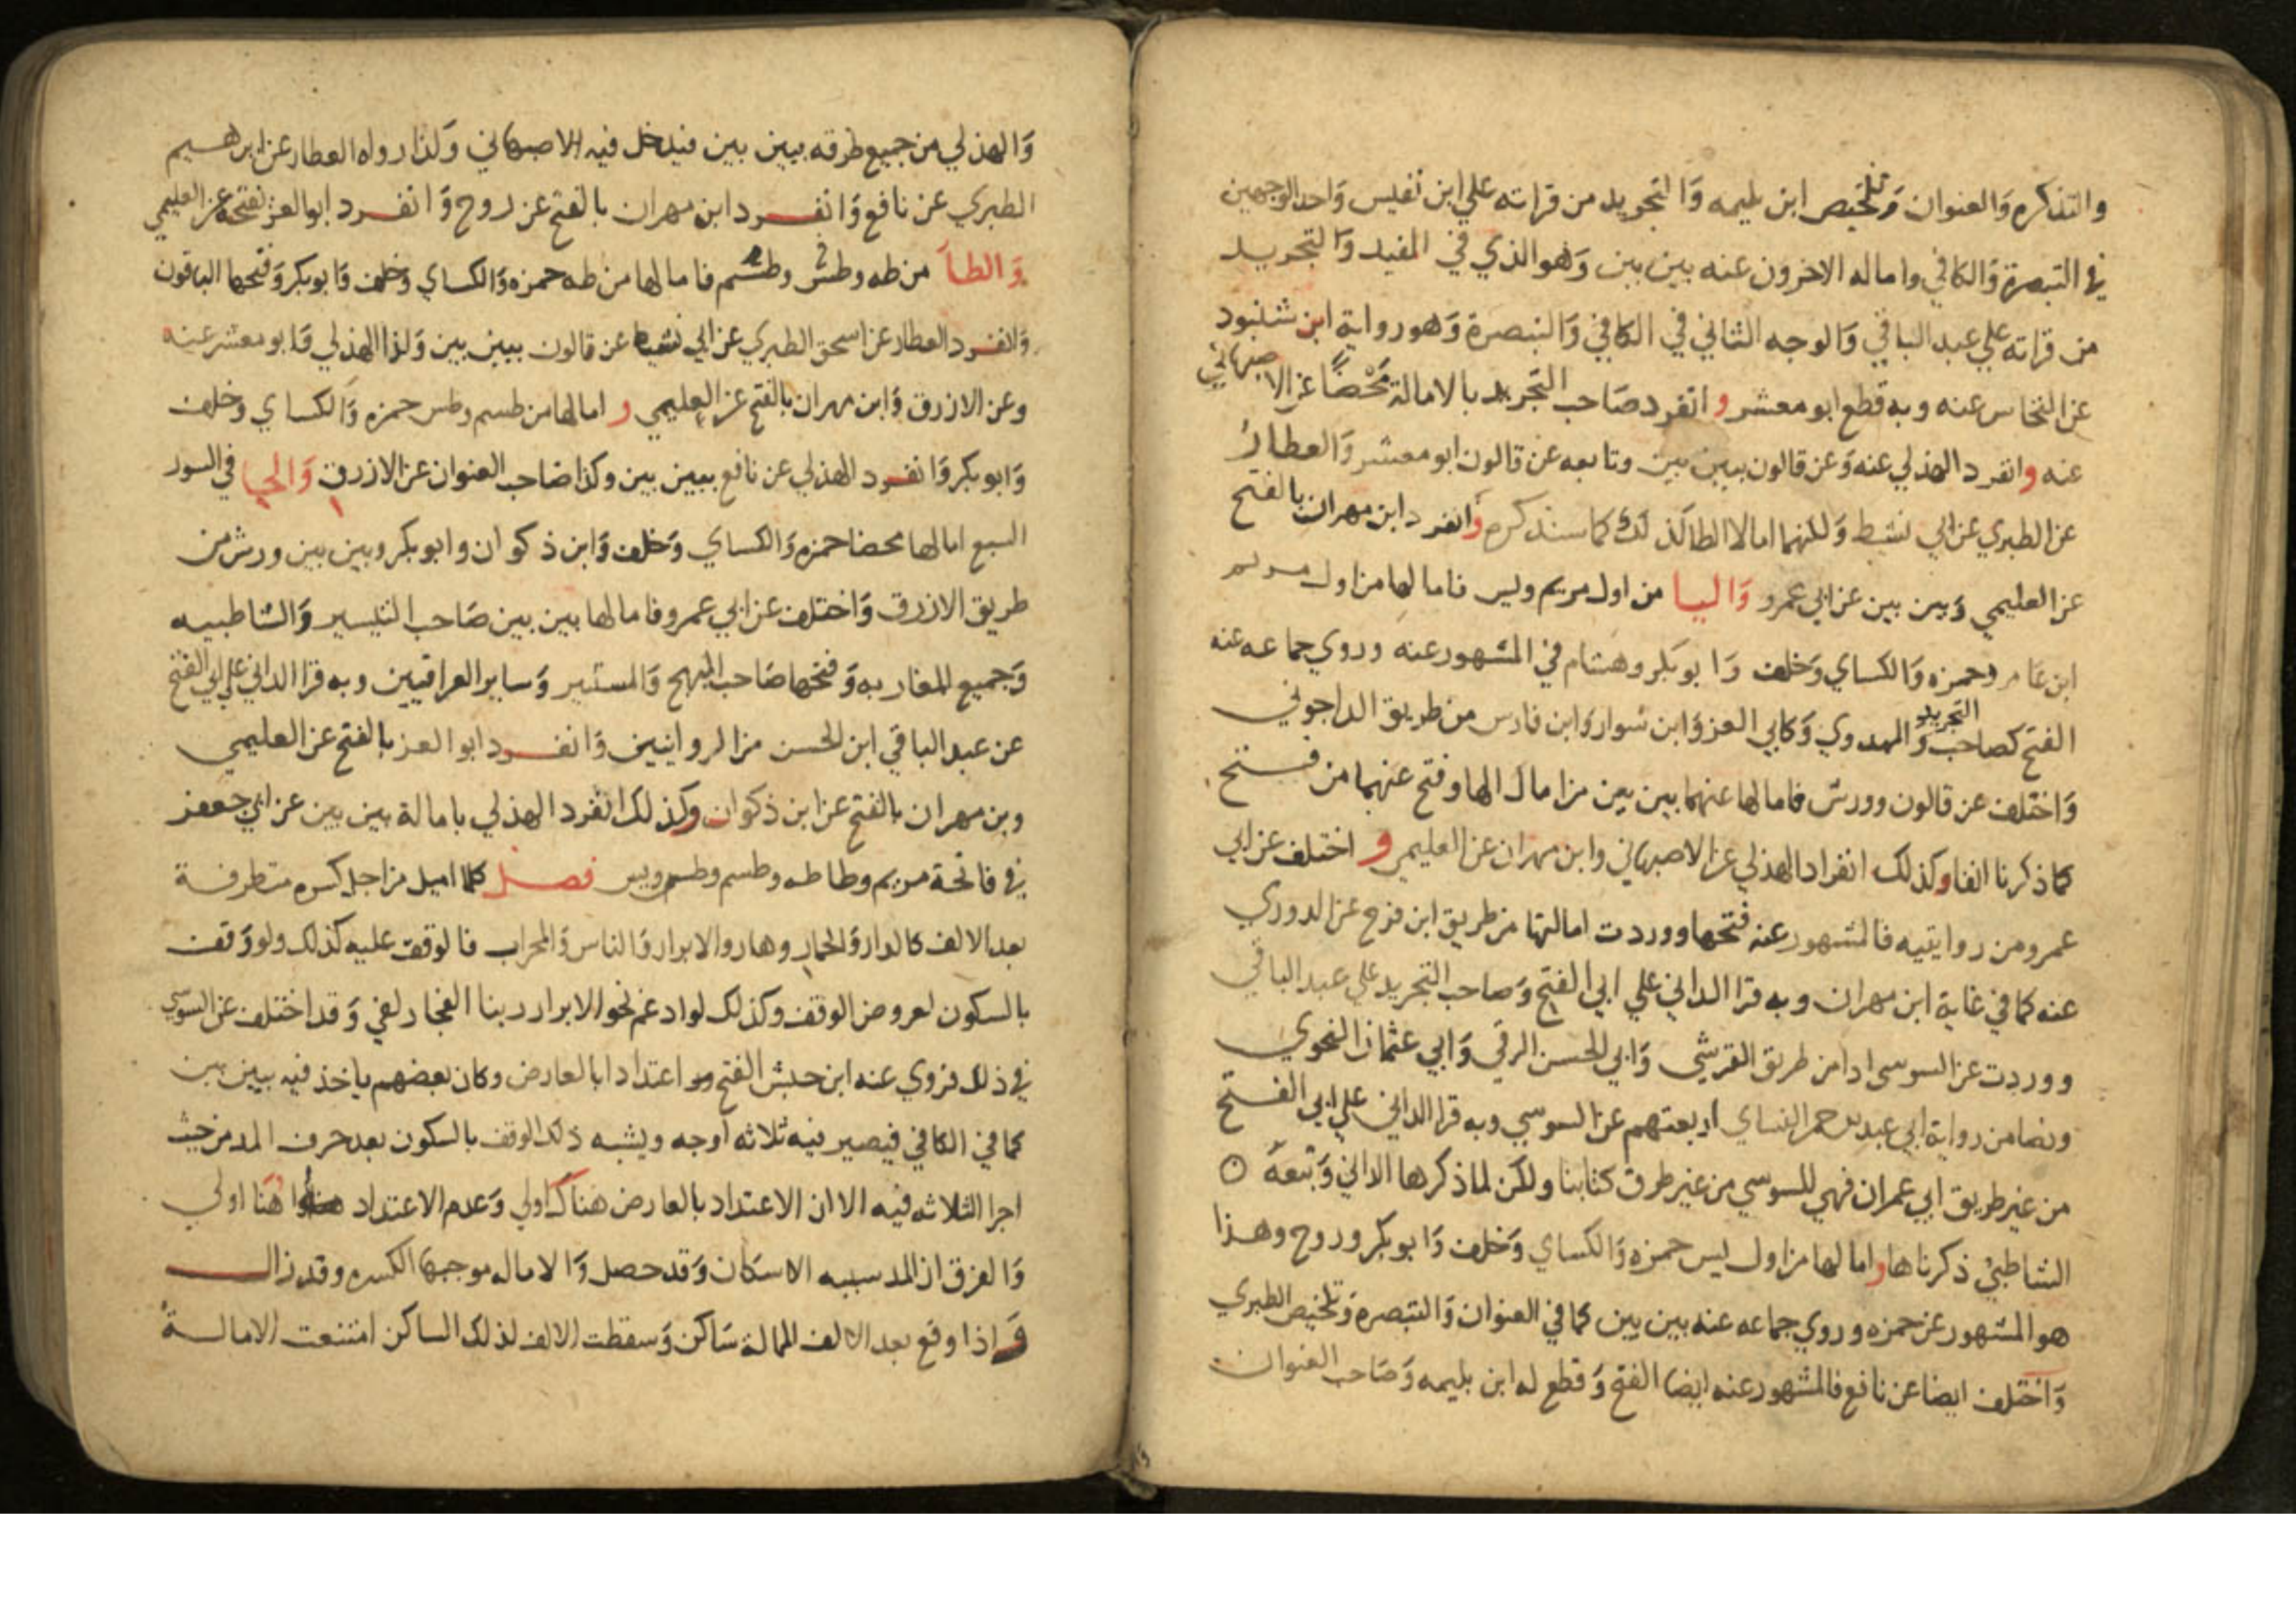 والتذكره وَالعنوان وَتلخيص ابن بليمه وَالتجريد من قراته علي ابن نفيس وَاحد الوجهين
في التبصرة وَالكافي واماله الاخرون عنه بين بين وَهو الذي في المفيد وَالتجريد
من قراته علي عبد الباقي وَالوجه الثاني في الكافي وَالتبصرة وَهو رواية ابن شنبود
عن النخاس عنه وبه قطع ابو معشر و انفرد صَاحب التجريد بالامالة مَحْضًا عن الاصبهاني
عنه وانفرد الهذلي عنه وَعن قالون ببين بين وتابعه عن قالون ابو معشر وَالعطار
عن الطبري عن ابي نشيط وَلكنهما امالا الطا كذلك كما سنذكره وَانفرد ابن مهران بالفتح
عن العليمي وَبين بين عن ابي عمرو وَاليا من اول مريم ويس فامالها من اول مريم
ابن عَامر وحمزه وَالكساي وَخلف وَابو بكر وهشام في المشهور عنه وروي جماعه عنه
الفتح كصاحب التجريد وَالمهدوي وَكابي العز وَابن سوار وَابن فارس من طريق الداجوني
وَاختلف عن قالون وورش فامالها عنهما بين بين من امال الها وفتح عنهما من فتح
كما ذكرنا انفا وكذلك انفراد الهذلي عن الاصبهاني وابن مهران عن العليمي و اختلف عن ابي
عمرو من روايتيه فالمشهور عنه فتحها ووردت امالتها من طريق ابن فرح عن الدوري
عنه كما في غاية ابن مهران وبه قرا الداني علي ابي الفتح وَصاحب التجريد علي عبد الباقي
ووردت عن السوسي ادا من طريق القرشي وَابي الحسن الرقي وَابي عثمان النحوي
ونصا من رواية ابي عبد الرحمن النساي اربعتهم عن السوسي وبه قرا الداني علي ابي الفتح
من غير طريق ابي عمران فهي للسوسي من غير طرق كتابنا ولكن لما ذكرها الداني وَتبعه
الشاطبي ذكرناها وامالها من اول يس حمزه وَالكساي وَخلف وَابو بكر وروح وهذا
هو المشهور عن حمزه وروي جماعه عنه بين بين كما في العنوان وَالتبصره وَتلخيص الطبري
وَاختلف ايضا عن نافع فالمشهور عنه ايضا الفتح وَقطع له ابن بليمه وَصَاحب العنوان
وَالهذلي من جميع طرقه ببين بين فيدخل فيه الاصبهاني وَكذا رواه العطار عن ابرهيم
الطبري عن نافع وَانفرد ابن مهران بالفتح عن روح وَانفرد ابو العز بفتحه عن العليمي
وَالطا من طه وطس وطسم فامالها من طه حمزه وَالكساي وَخلف وَابو بكر وَفتحها الباقون
وَانفرد العطار عن اسحق الطبري عن ابي نشيط عن قالون ببين بين وَكذا الهذلي وَابو معشر عنه
وعن الازرق وَابن مهران بالفتح عن العليمي و امالها من طسم وطس حمزه وَالكساي وخلف
وَابو بكر وَانفرد الهذلي عن نافع ببين بين وكذا صَاحب العنوان عن الازرق وَالحا في السور
السبع امالها محضا حمزه وَالكساي وَخلف وَابن ذكوان وابو بكر وبين بين ورش من
طريق الازرق وَاختلف عن ابي عمرو فامالها بين بين صَاحب التيسير وَالشاطبيه
وَجميع المغاربه وَفتحها صَاحب المبهج وَالمستنير وَساير العراقيين وبه قرا الداني علي ابي الفتح
عن عبد الباقي ابن الحسن من الروايتين وَانفرد ابو العز بالفتح عن العليمي
وبن مهران بالفتح عن ابن ذكوان وكذلك انفرد الهذلي بامالة بين بين عن ابي جعفر
في فاتحة مريم وطا طه وطسم وطس ويس فصل كلما اميل من اجل كسره متطرفة
بعد الالف كالدار وَالحمار وهار والابرار وَالناس وَالمحراب فالوقف عليه كذلك ولو وَقف
بالسكون لعروض الوقف وكذلك لو ادغم نحو الابرار ربنا الفجار لفي وَقد اختلف عن السوسي
في ذلك فروي عنه ابن حبش الفتح اعتدادا بالعارض وكان بعضهم ياخذ فيه ببين بين
كما في الكافي فيصير فيه ثلاثه أوجه ويشبه ذلك الوقف بالسكون بعد حرف المد من حيث
اجرا الثلاثه فيه الا ان الاعتداد بالعارض هناك اولي وَعدم الاعتداد هنا اولي
وَالفرق ان المد سببه الاسكان وَقد حصل وَالاماله موجبها الكسره وقد زال
وَاذا وقع بعد الالف الممالة سَاكن وَسقطت الالف لذلك الساكن امتنعت الامالة